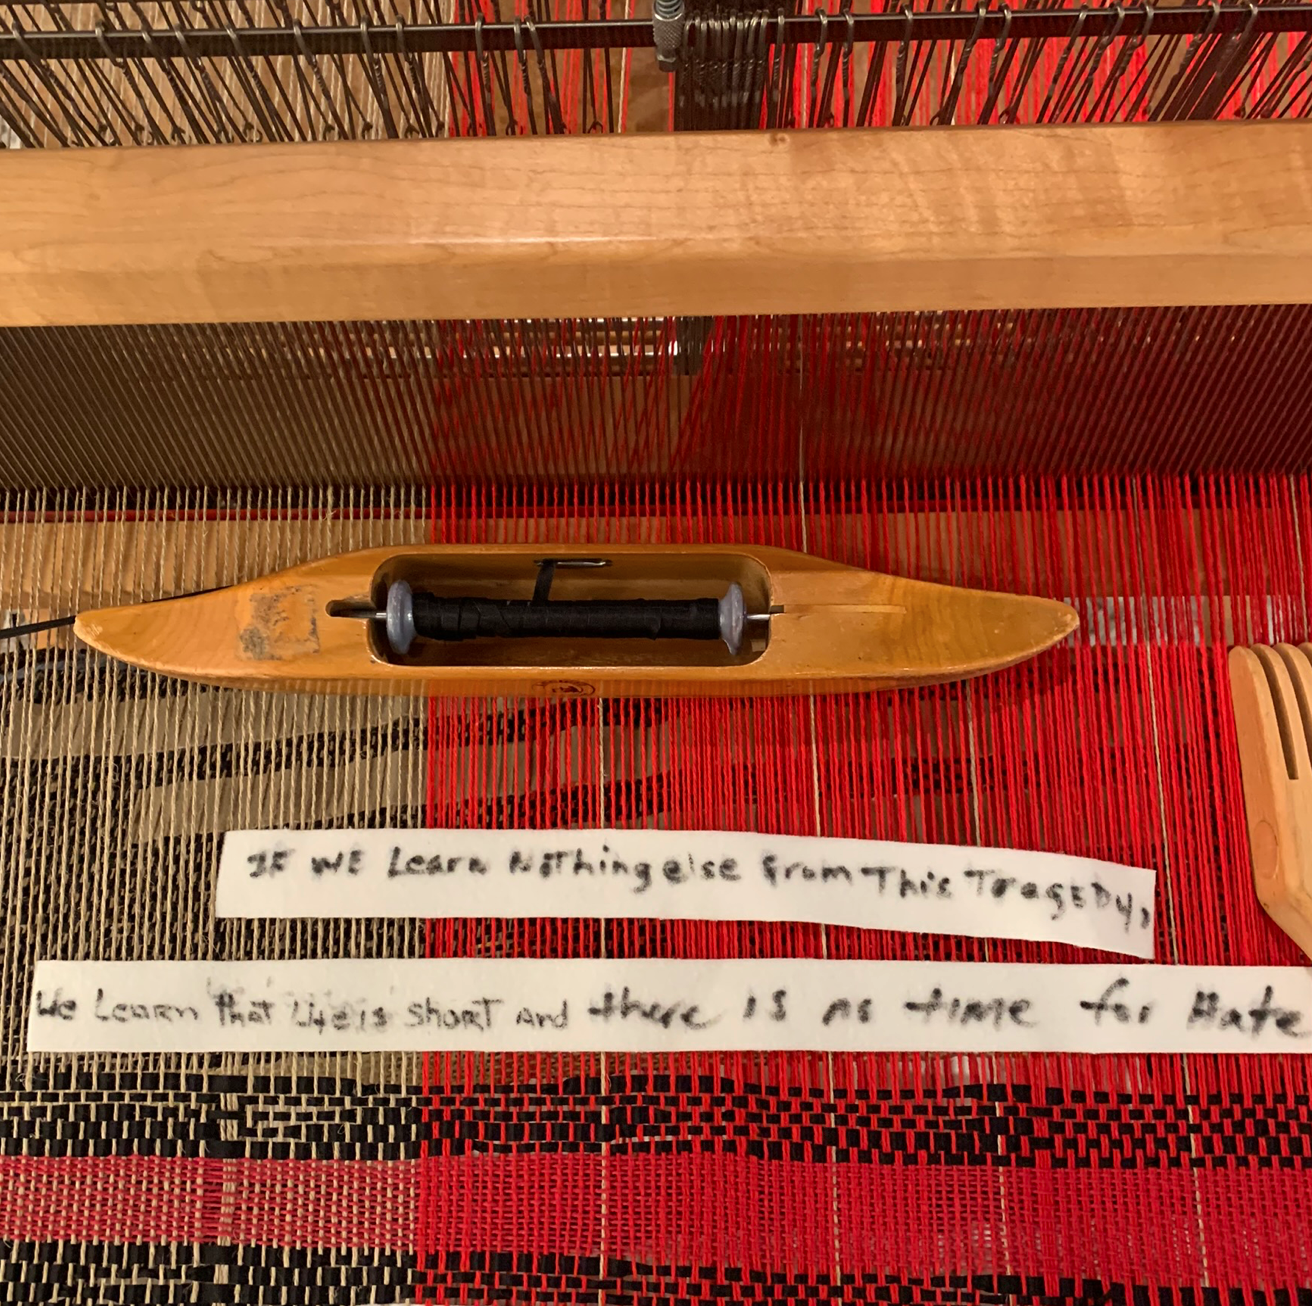 IF WE Learn Nothing else from This TragEDy,
We Learn that Life is short and there IS no time for Hate